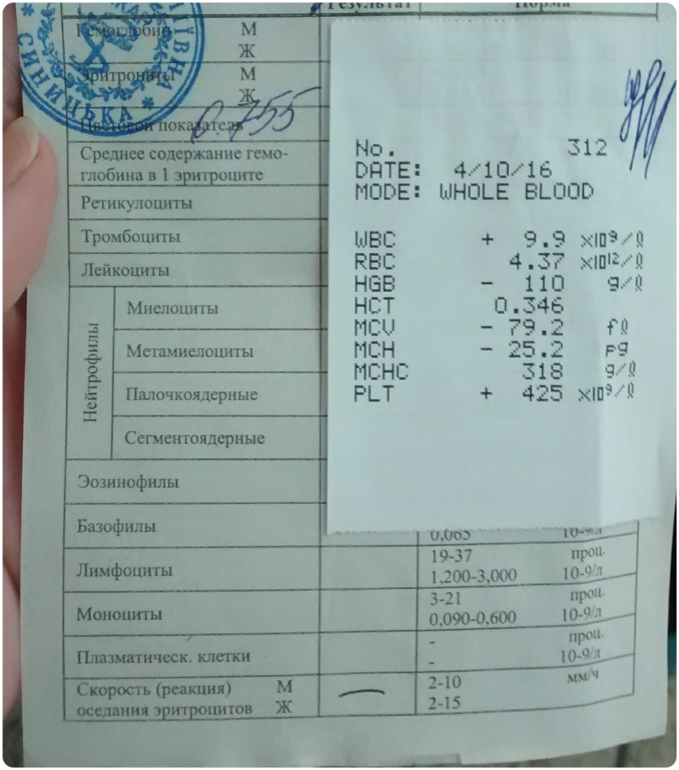 Результат Норма
Гемоглобин М
Ж
Эритроциты М
Ж
СИНИЦЬКА
Цветовой показатель 0.755
Среднее содержание гемо-
глобина в 1 эритроците
Ретикулоциты
Тромбоциты
Лейкоциты
Нейтрофилы
Миелоциты
Метамиелоциты
Палочкоядерные
Сегментоядерные
Эозинофилы
Базофилы
Лимфоциты
Моноциты
Плазматическ. клетки
Скорость (реакция) М
оседания эритроцитов Ж
No. 312
DATE: 4/10/16
MODE: WHOLE BLOOD
WBC + 9.9 x10⁹/l
RBC 4.37 x10¹²/l
HGB - 110 g/l
HCT 0.346
MCV - 79.2 fl
MCH - 25.2 pg
MCHC 318 g/l
PLT + 425 x10⁹/l
0,065 10-9/л
19-37 проц.
1,200-3,000 10-9/л
3-21 проц.
0,090-0,600 10-9/л
- проц.
- 10-9/л
2-10 мм/ч
2-15